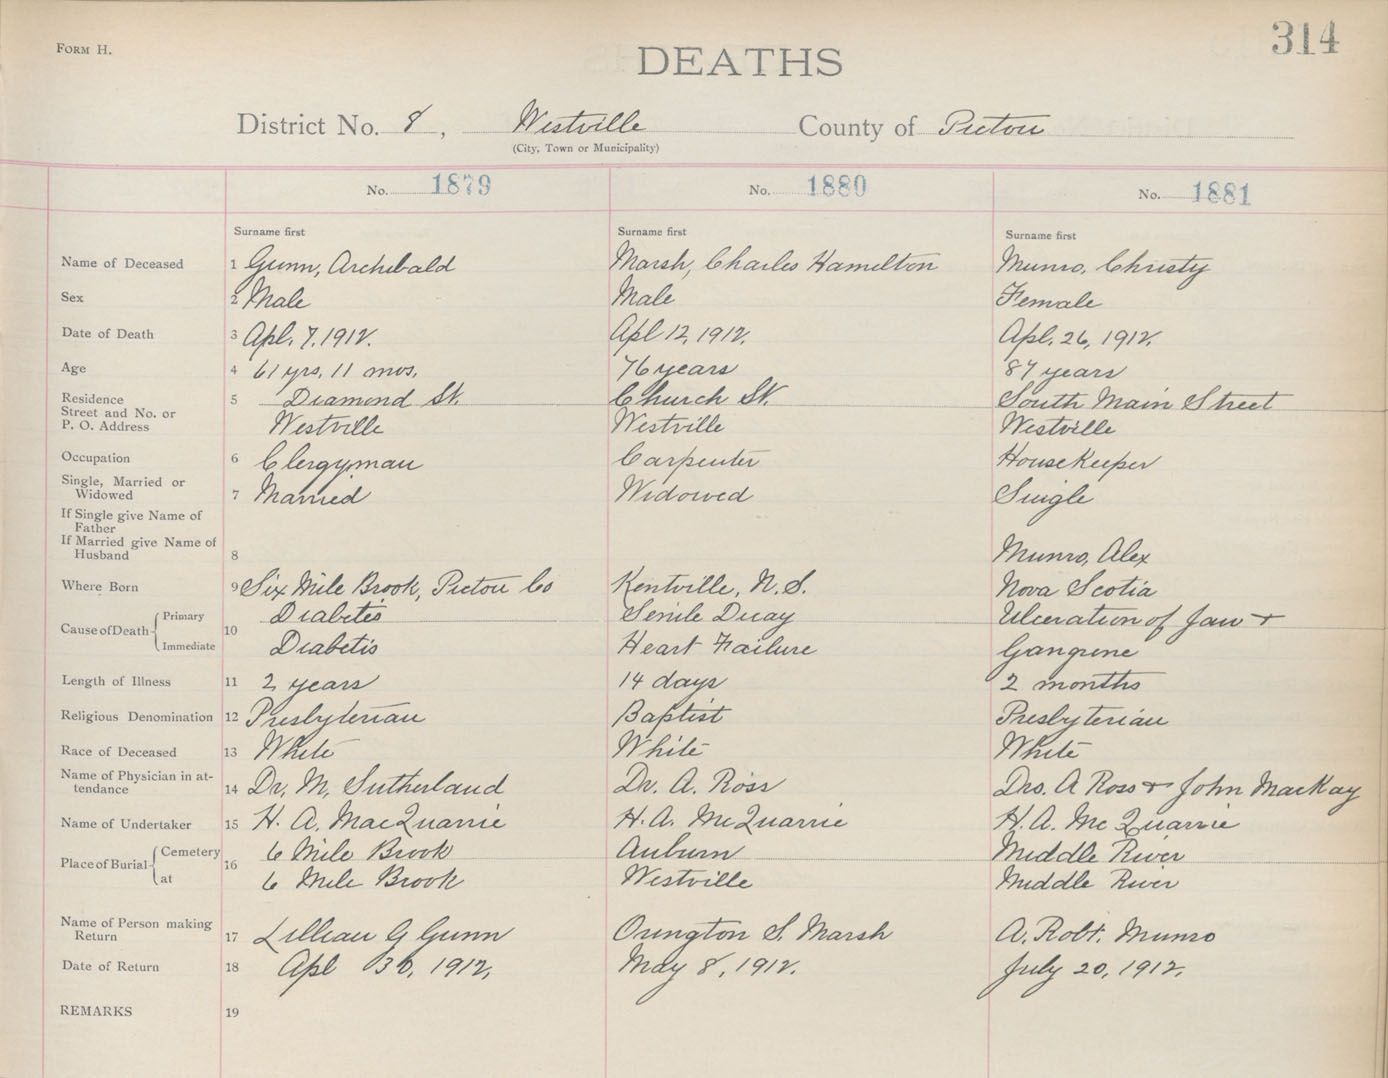 314
FORM H.
DEATHS
District No. 8, Westville County of Pictou
(City, Town or Municipality)
No. 1879 No. 1880 No. 1881
Surname first Surname first Surname first
Name of Deceased 1 Gunn, Archibald Marsh, Charles Hamelton Munro, Christy
Sex 2 Male Male Female
Date of Death 3 Apl. 7, 1912. Apl 12, 1912. Apl. 26, 1912.
Age 4 61 yrs. 11 mos. 76 years 87 years
Residence 5 Diamond St. Church St. South Main Street
Street and No. or
P. O. Address Westville Westville Westville
Occupation 6 Clergyman Carpenter HouseKeeper
Single, Married or
Widowed 7 Married Widowed Single
If Single give Name of
Father
If Married give Name of
Husband 8 Munro, Alex
Where Born 9 Six Mile Brook, Pictou Co Kentville, N.S. Nova Scotia
Cause of Death Primary 10 Diabetes Senile Decay Ulceration of Jaw +
Immediate Diabetis Heart Failure Gangrene
Length of Illness 11 2 years 14 days 2 months
Religious Denomination 12 Presbyterian Baptist Presbyterian
Race of Deceased 13 White White White
Name of Physician in at-
tendance 14 Dr. M. Sutherland Dr. A. Ross Drs. A Ross + John MacKay
Name of Undertaker 15 H. A. MacQuarrie H. A. McQuarrie H. A. McQuarrie
Place of Burial Cemetery 16 6 Mile Brook Auburn Middle River
at 6 Mile Brook Westville Middle River
Name of Person making
Return 17 Lillian G Gunn Orington S. Marsh A. Robt. Munro
Date of Return 18 Apl 30, 1912. May 8, 1912. July 20, 1912.
REMARKS 19